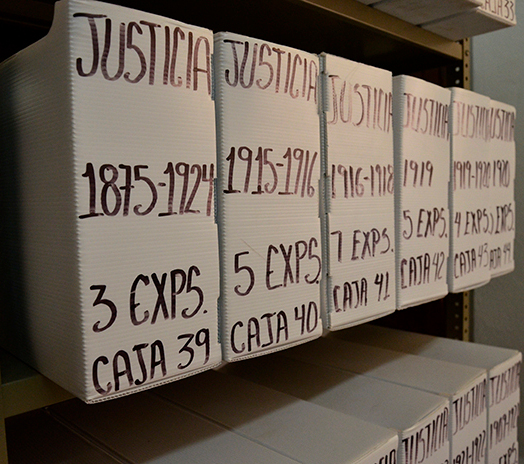 CAJA 33
JUSTICIA
1875-1924
3 EXPS.
CAJA 39
JUSTICIA
1915-1916
5 EXPS.
CAJA 40
JUSTICIA
1916-1918
7 EXPS.
CAJA 41
JUSTICIA
1919
5 EXPS.
CAJA 42
JUSTICIA
1919-1920
4 EXPS.
CAJA 43
1920
JUSTICIA
JUSTICIA
JUSTICIA